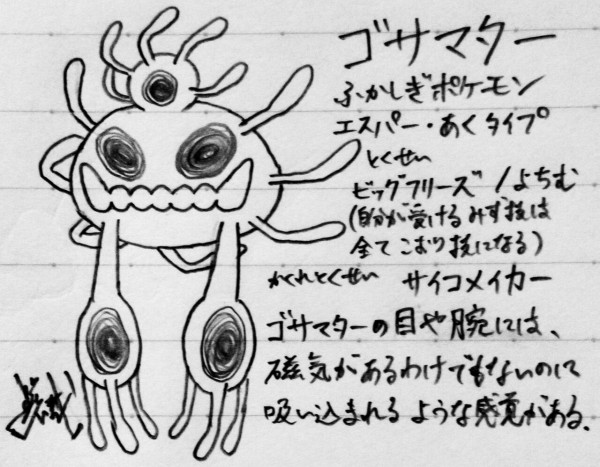 ゴサマター
ふかしぎポケモン
エスパー・あくタイプ
とくせい
ビッグフリーズ/よちむ
(自分が受けるみず技は
全てこおり技になる)
かくれとくせい サイコメイカー
ゴサマターの目や腕には、
磁気があるわけでもないのに
吸い込まれるような感覚がある.